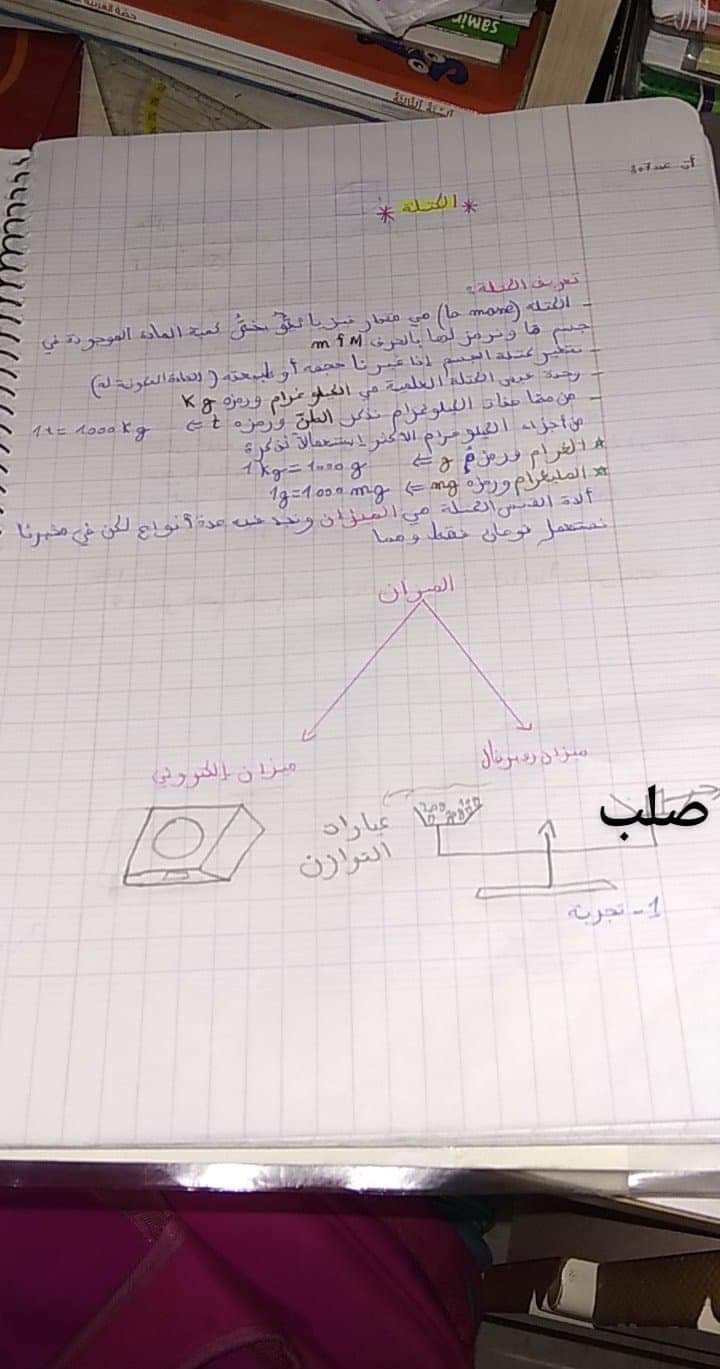 samir
* الكتلة *
تعريف الكتلة:
- الكتلة (la masse) هي مقدار فيزيائي يخص كمية المادة الموجودة في
جسم ما ونرمز لها بالحرف M أو m
- تتغير كتلة الجسم إذا غيرنا حجمه أو طبيعته (المادة المكونة له)
- وحدة قيس الكتلة العلمية هي الكيلوغرام ورمزه Kg
- من مضاعفات الكيلوغرام نذكر الطن ورمزه t ⇐ 1t = 1000 Kg
من أجزاء الكيلوغرام الأكثر استعمالا نذكر:
* الغرام ورمزه g ⇐ 1 Kg = 1000 g
* المليغرام ورمزه mg ⇐ 1g = 1000 mg
آلة القيس الكتلة هي الميزان ونجد منه عدة أنواع لكن في مخبرنا
نستعمل نوعان فقط وهما
الميزان
ميزان روبرفال
ميزان إلكتروني
صلب
عبارات
التوازن
1- تجربة